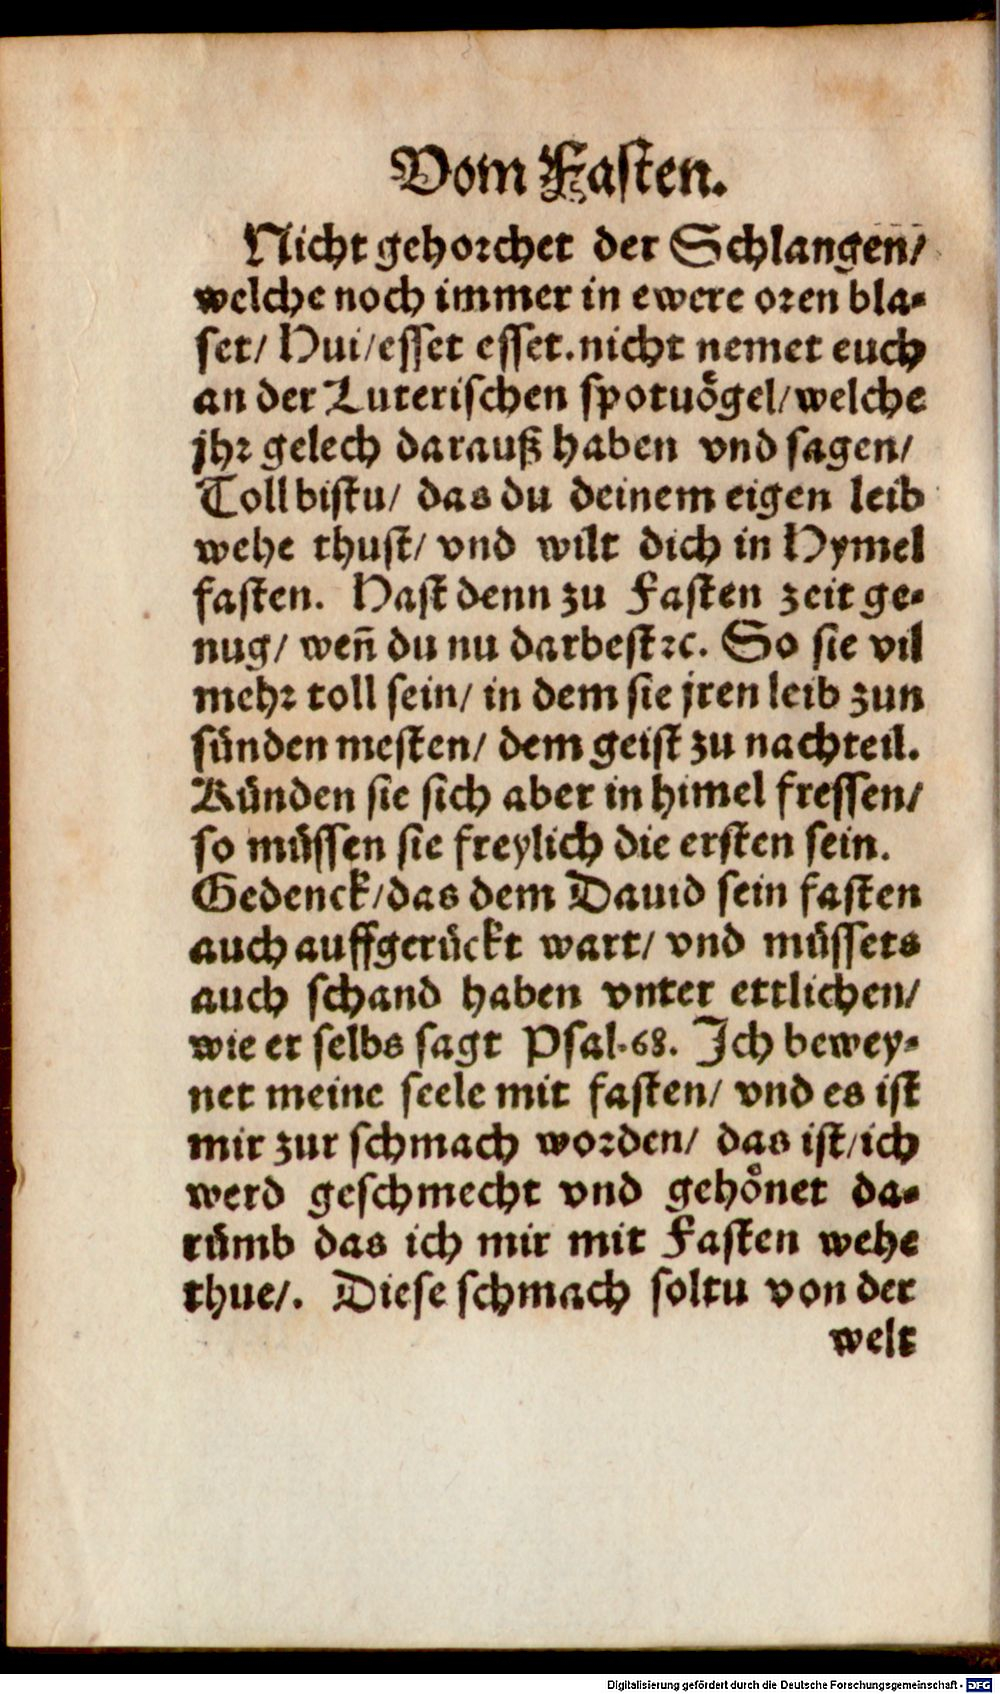 Vom Fasten.
Nicht gehorchet der Schlangen/
welche noch immer in ewere oren bla-
set/ Hui/esset esset.nicht nemet euch
an der Luterischen spotuoͤgel/welche
jhr gelech darauß haben vnd sagen/
Toll bistu/ das du deinem eigen leib
wehe thust/ vnd wilt dich in Hymel
fasten. Hast denn zu Fasten zeit ge-
nug/ weñ du nu darbest ꝛc. So sie vil
mehr toll sein/ in dem sie jren leib zun
sünden mesten/ dem geist zu nachteil.
Künden sie sich aber in himel fressen/
so müssen sie freylich die ersten sein.
Gedenck/das dem Dauid sein fasten
auch auffgerückt wart/ vnd müssets
auch schand haben vnter ettlichen/
wie er selbs sagt Psal.68. Ich bewey-
net meine seele mit fasten/ vnd es ist
mir zur schmach worden/ das ist/ich
werd geschmecht vnd gehoͤnet da-
rümb das ich mir mit Fasten wehe
thue/. Diese schmach soltu von der
welt
Digitalisierung gefördert durch die Deutsche Forschungsgemeinschaft - DFG